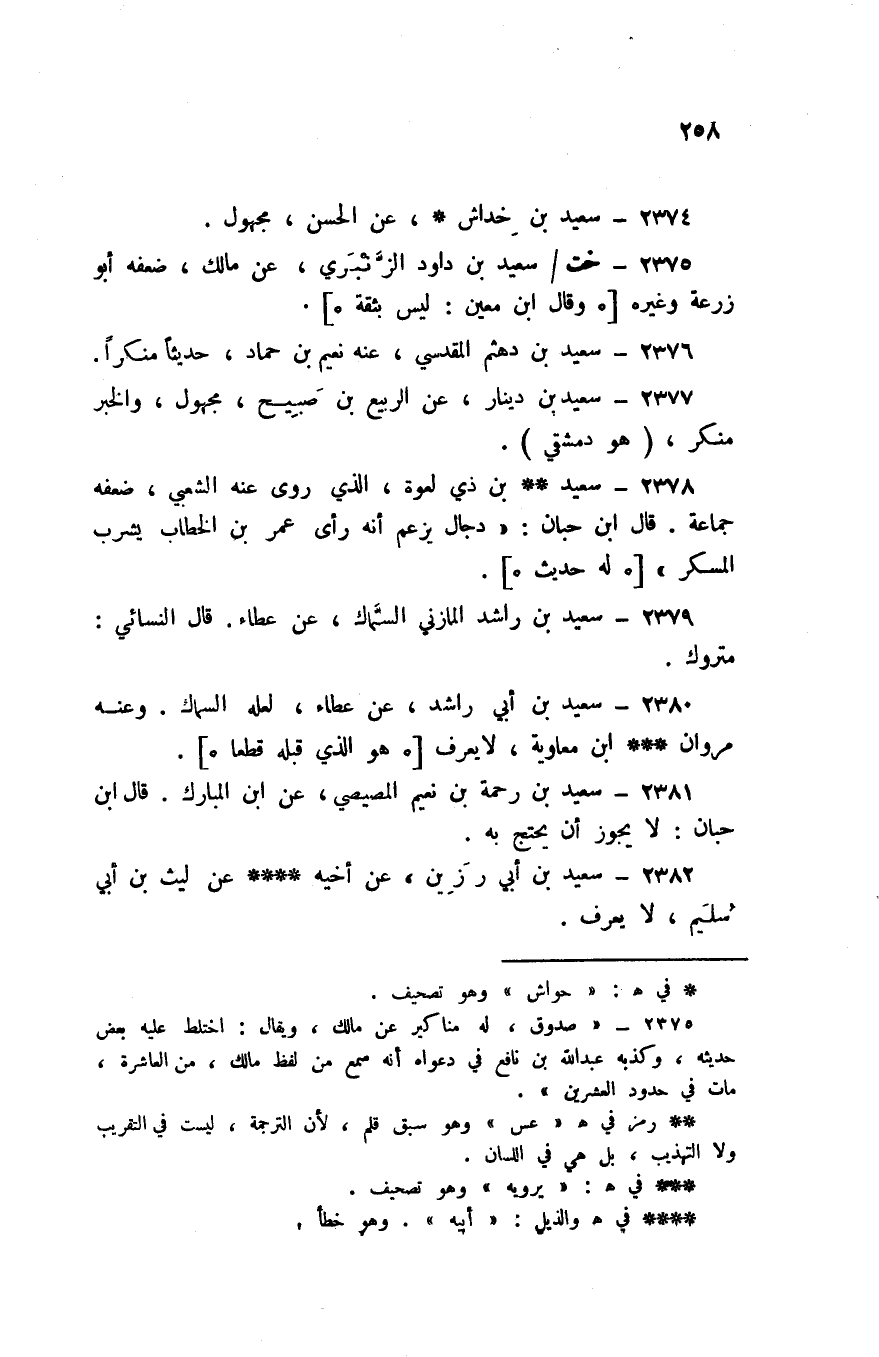 ٢٥٨
٢٣٧٤ – سعيد بن خِداش * ، عن الحسن ، مجهول .
٢٣٧٥ – خت / سعيد بن داود الزَّنْبَري ، عن مالك ، ضعفه أبو
زرعة وغيره [ه وقال ابن معين : ليس بثقة ه] .
٢٣٧٦ – سعيد بن دهثم المقدسي ، عنه نعيم بن حماد ، حديثاً منكراً .
٢٣٧٧ – سعيد بن دينار ، عن الربيع بن صَبِيح ، مجهول ، والخبر
منكر ، ( هو دمشقي ) .
٢٣٧٨ – سعيد ** بن ذي لعوة ، الذي روى عنه الشعبي ، ضعفه
جماعة . قال ابن حبان : « دجال يزعم أنه رأى عمر بن الخطاب يشرب
المسكر » [ه له حديث ه] .
٢٣٧٩ – سعيد بن راشد المازني السَّماك ، عن عطاء . قال النسائي :
متروك .
٢٣٨٠ – سعيد بن أبي راشد ، عن عطاء ، لعله السماك . وعنه
مروان *** ابن معاوية ، لايعرف [ه هو الذي قبله قطعا ه] .
٢٣٨١ – سعيد بن رحمة بن نعيم المصيصي ، عن ابن المبارك . قال ابن
حبان : لا يجوز أن يحتج به .
٢٣٨٢ – سعيد بن أبي رَزِين ، عن أخيه **** عن ليث بن أبي
سُلَيم ، لا يعرف .
* في هـ : « حواش » وهو تصحيف .
٢٣٧٥ – « صدوق ، له مناكير عن مالك ، ويقال : اختلط عليه بعض
حديثه ، وكذبه عبدالله بن نافع في دعواه أنه سمع من لفظ مالك ، من العاشرة ،
مات في حدود العشرين » .
** رمز في هـ « عس » وهو سبق قلم ، لأن الترجمة ، ليست في التقريب
ولا التهذيب ، بل هي في اللسان .
*** في هـ : « يرويه » وهو تصحيف .
**** في هـ والذيل : « أبيه » . وهو خطأ .